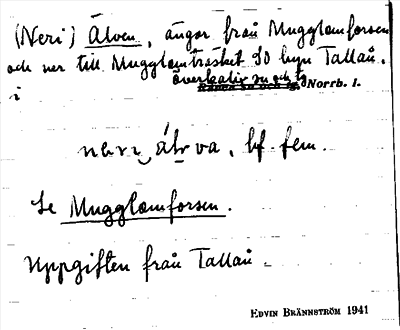 (Neri) Älven, ängor från Mugglomforsen
och ner till Mugglomträsket SO byn Tallån.
i överkalix sn och tg Norrb. l.
bf. fem.
Se Mugglomforsen.
Uppgiften från Tallån
EDVIN BRÄNNSTRÖM 1941